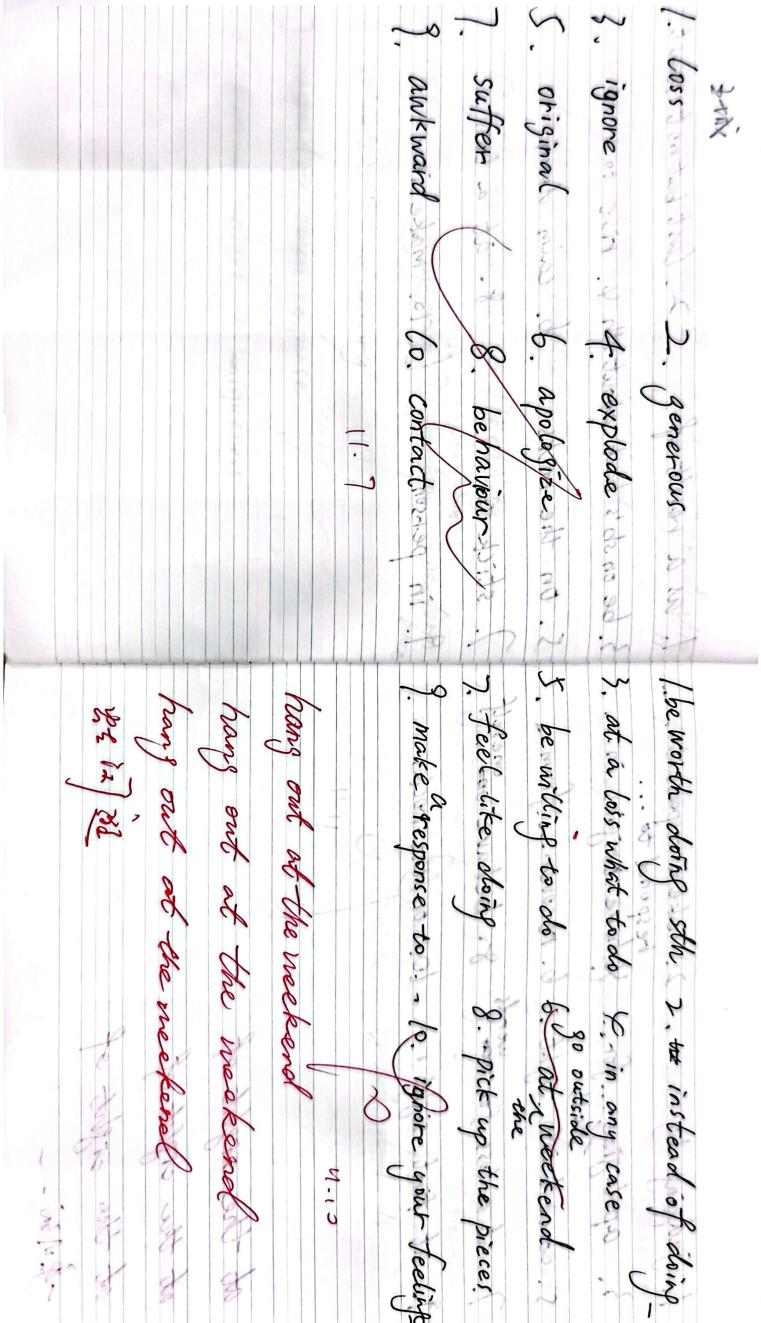 1. loss 2. generous
3. ignore 4. explode
5. original 6. apologize
7. suffer 8. behaviour
9. awkward 10. contact
11.7
1. be worth doing sth. 2. instead of doing
3. at a loss what to do 4. in any case
5. be willing to do 6. go outside at the weekend
7. feel like doing 8. pick up the pieces
9. make a response to 10. ignore your feelings
11.10
hang out at the weekend
hang out at the weekend
hang out at the weekend